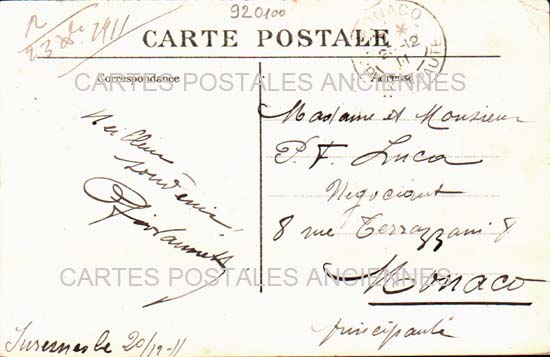 920100
R
23 Xe 1911
CARTE POSTALE
MONACO
12
11
CARTES POSTALES ANCIENNES
Correspondance
Adresse
Meilleur
souvenir
Madame et Monsieur
P. F. Luca
Negociant
8 rue Terrazzani 8
Monaco
principauté
CARTES POSTALES ANCIENNES
20/12-11